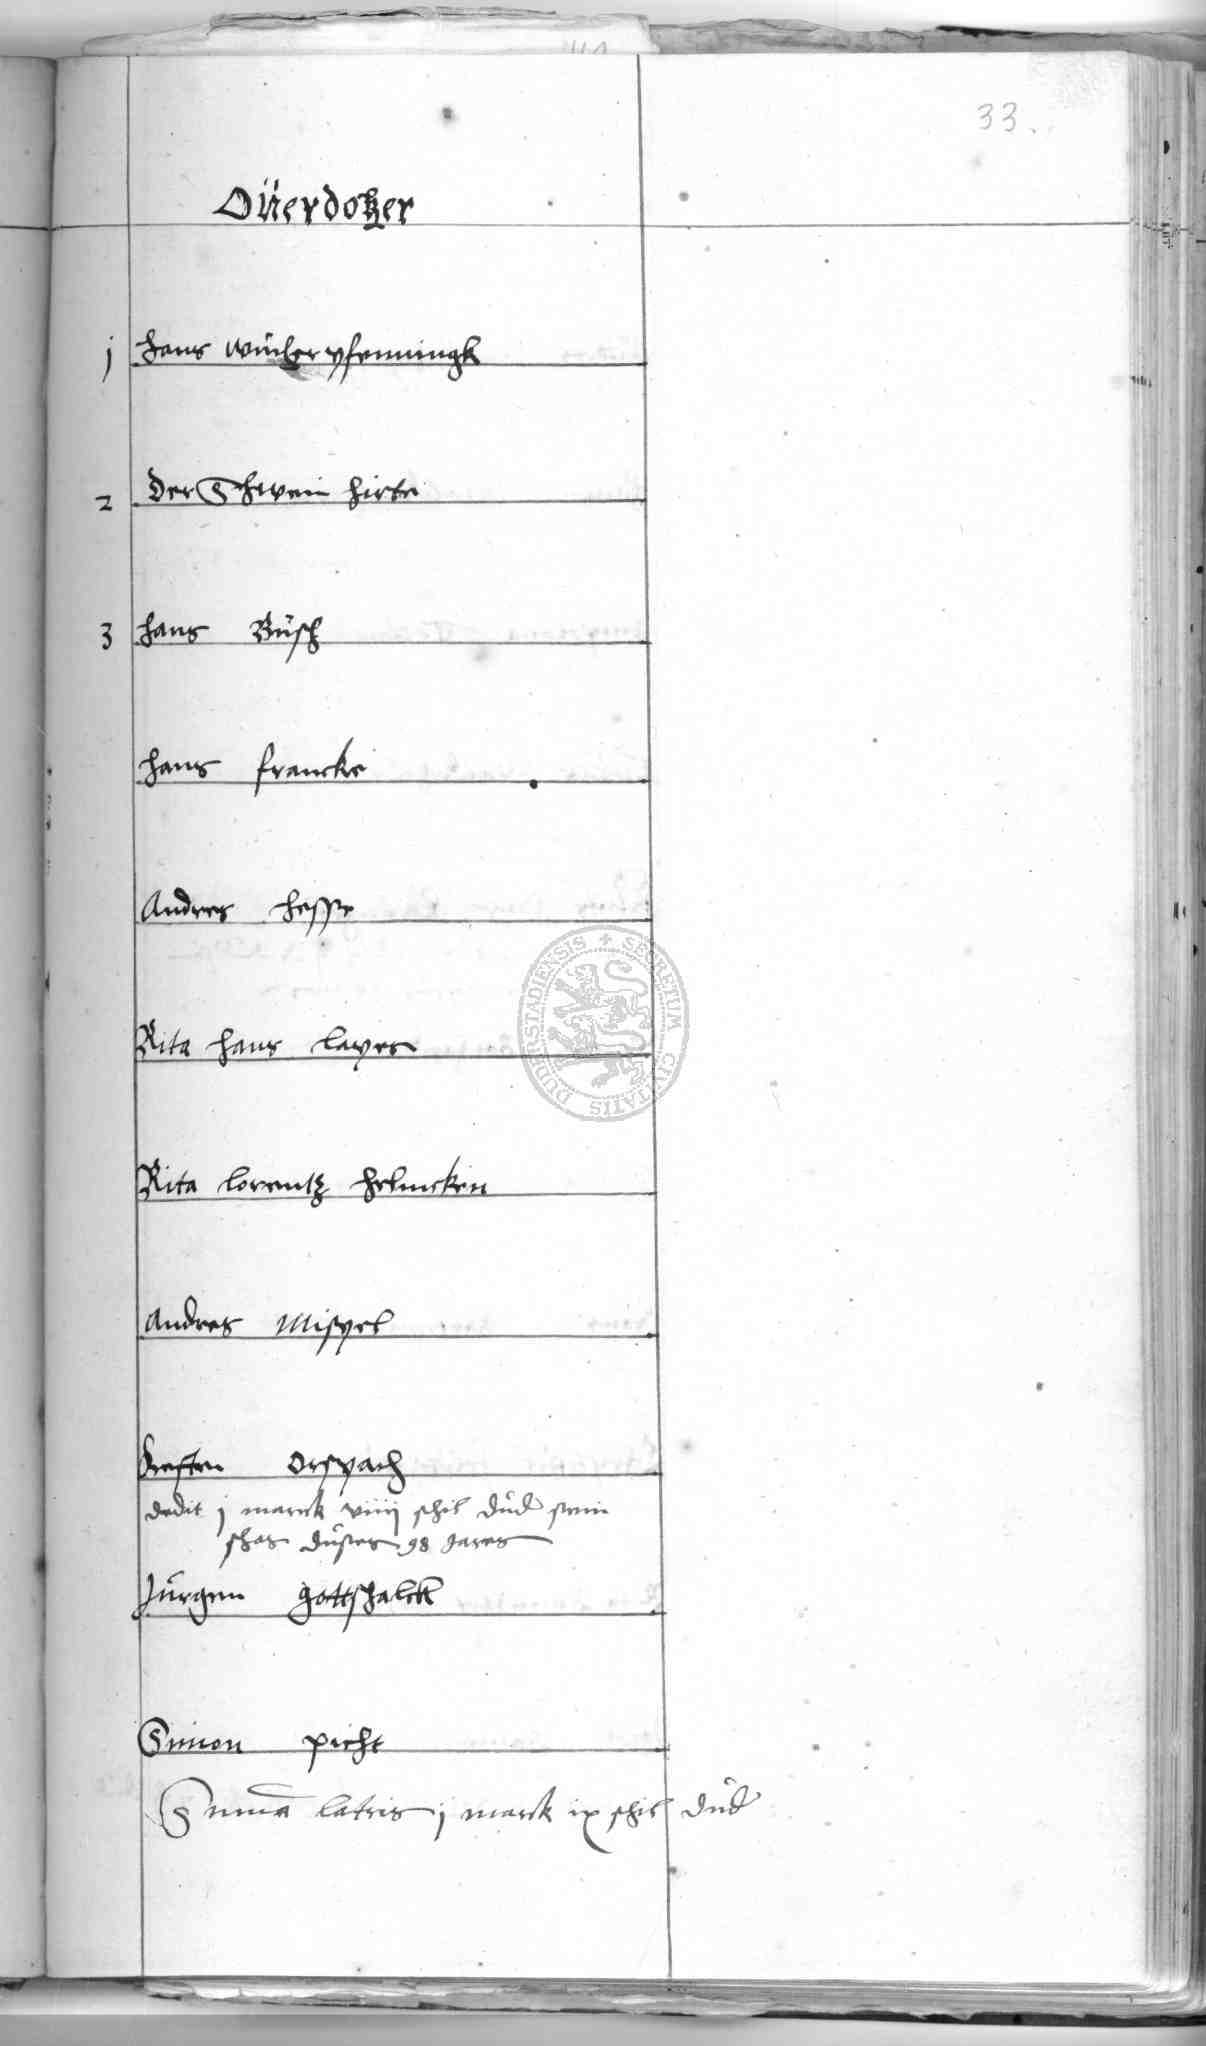 33.
Oüerdotzer
1 Hans wücherpfenningk
2 Der Schwein hirte
3 Hans Büsch
Hans francke
Andres Hesse
Rita Hans
Rita lorentz Helmcken
Andres Mispel
Kersten Orspach
dedit j marck viiij schil düd sein
schos düsses 98 Jares
Jürgen gottschalck
Simon picht
Summa lateris j marck ix schil düd
DUDERSTADIENSIS + SECRETUM CIVITATIS